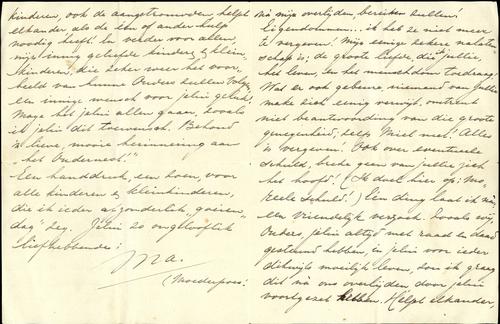 kinderen, ook de aangetrouwden helpt
elkander, als de één of ander hulp
noodig heeft! En verder voor allen,
mijn innig geliefde kinders & klein-
kinderen, die zeker weer het voor-
beeld van hunne Ouders zullen volgen
een innige wensch voor jelui geluk!
Moge het jelui allen gaan, zooals
ik jelui dit toewensch. Behoud
'n lieve, mooie herinnering aan
het Oudernest!"
Een handdruk, een zoen, voor
alle kinderen & kleinkinderen,
die ik ieder afzonderlijk "goeien-
dag" zeg. Jelui zo ongelooflijk
liefhebbende:
Ma.
(Moederpoes.
ná mijn overlijden, bereiken zullen!
Eigendommen... ik heb ze niet meer
te vergeven! Mijn eenige zekere nalaten-
schap is; de groote liefde, die jullie,
het leven, en het menschdom toedraag.
Wat er ook gebeure, niemand van jullie
make zich eenig verwijt, omtrent
niet beantwoording van die groote
genegenheid, zelfs Miel niet! Alles
is vergeven! Ook over eventueele
schuld, breke geen van jullie zich
het hoofd! (Ik doel hier op: mo-
reele schuld!) Een ding laat ik ná,
een vriendelijk verzoek. Zooals wij
Ouders, jelui altijd met raad en daad
gesteund hebben, in jelui voor ieder
dikwijls moeilijk leven, zou ik graag
dit ná ons overlijden door jelui
voortgezet hebben. Helpt elkander,